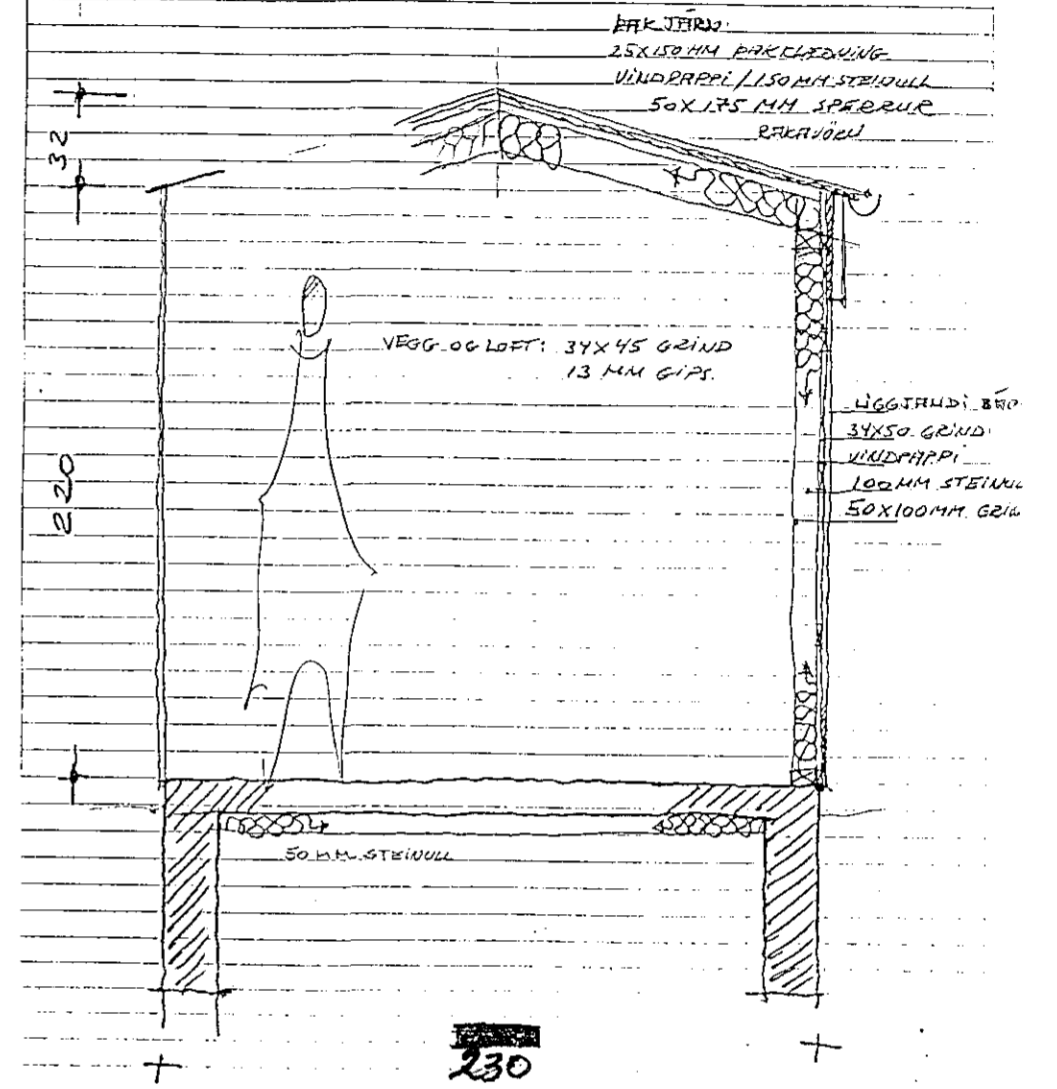 ÞAKJÁRN
25X150 MM ÞAKKLÆÐNING
VINDPAPPI / 150 MM STEINULL
50X175 MM SPERRUR
RAKAVÖRN
32
VEGG OG LOFT: 34X45 GRIND
13 MM GIPS.
LIGGJANDI BÁR
34X50 GRIND
VINDPAPPI
100 MM STEINUL
50X100 MM GRIN
220
50 MM STEINULL
230